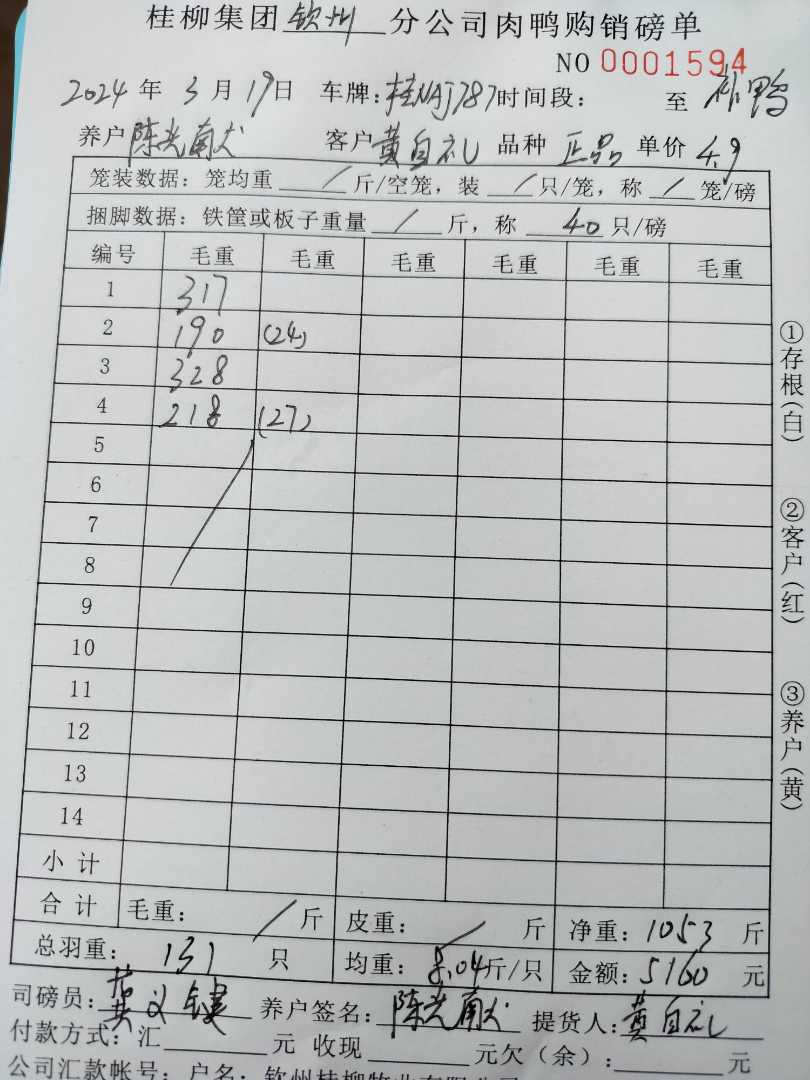 桂柳集团钦州分公司肉鸭购销磅单
NO 0001594
2024年3月19日 车牌:桂NAJ787时间段: 至 补鸭
养户陈光南 客户黄自礼 品种 正品 单价 4.9
笼装数据:笼均重 / 斤/空笼,装 / 只/笼,称 / 笼/磅
捆脚数据:铁筐或板子重量 / 斤,称 40 只/磅
编号 毛重 毛重 毛重 毛重 毛重 毛重
1 317
2 190 (24)
3 328
4 218 (27)
5
6
7
8
9
10
11
12
13
14
小计
合计 毛重: / 斤 皮重: / 斤 净重:1053 斤
总羽重: 131 只 均重:8.04斤/只 金额:5160 元
司磅员:黄义键 养户签名:陈光南 提货人:黄自礼
付款方式:汇 元 收现 元欠(余): 元
公司汇款帐号:户名:钦州桂柳牧业有限公司
①存根(白)
②客户(红)
③养户(黄)